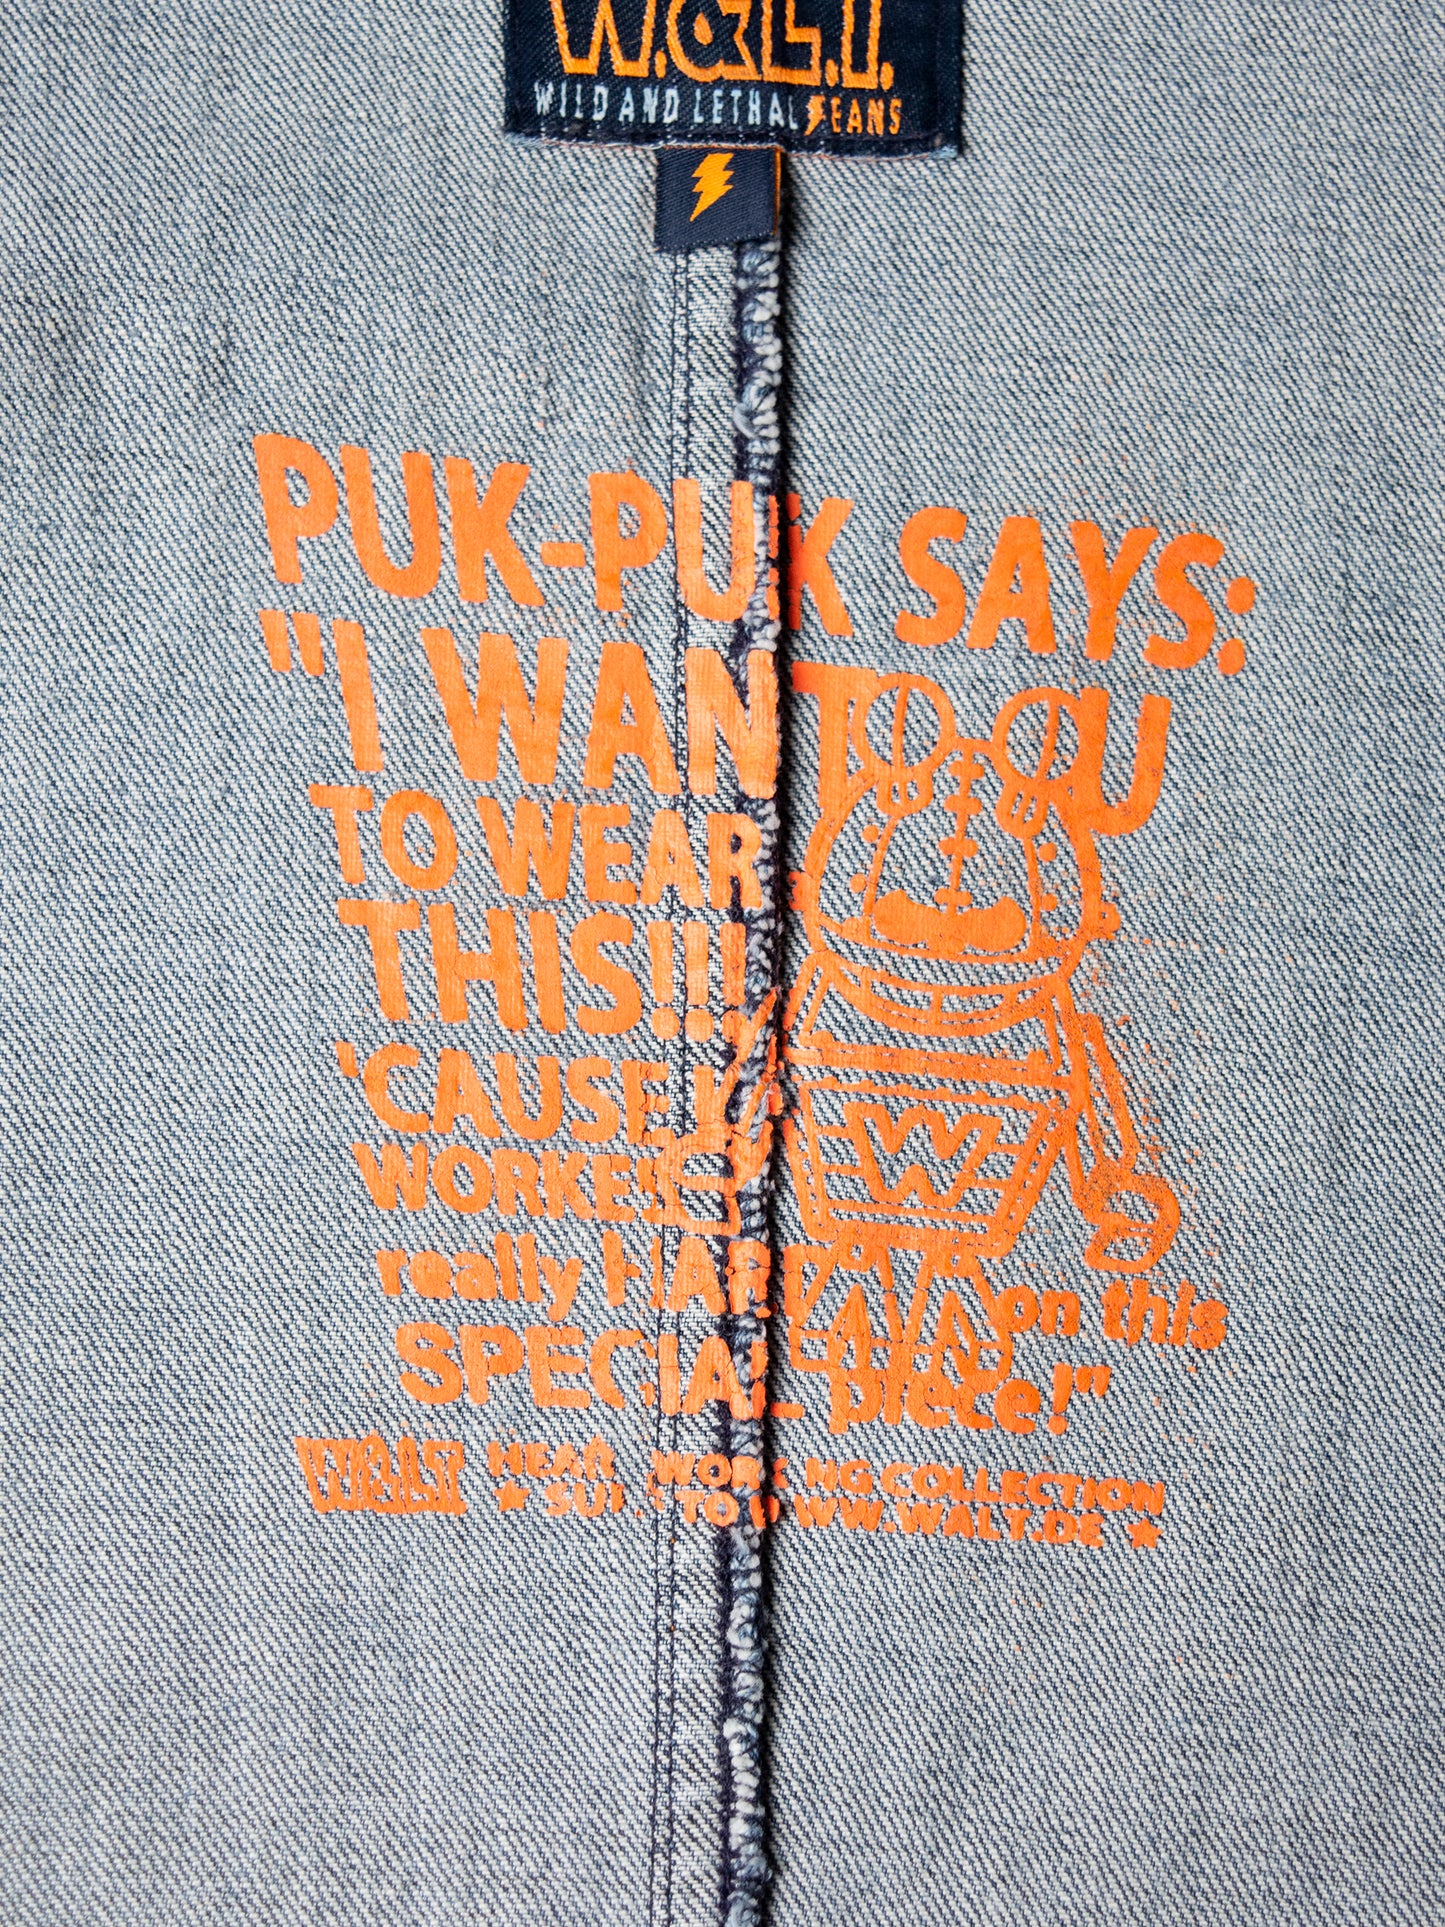 W.&L.T.
WILD AND LETHAL JEANS
PUK-PUK SAYS:
"I WANT YOU
TO WEAR
THIS!!!
'CAUSE I
WORKED
really HARD on this
SPECIAL piece!"
W.&L.T. WEAR WORKING COLLECTION
★ SURF TO WWW.WALT.DE ★
W